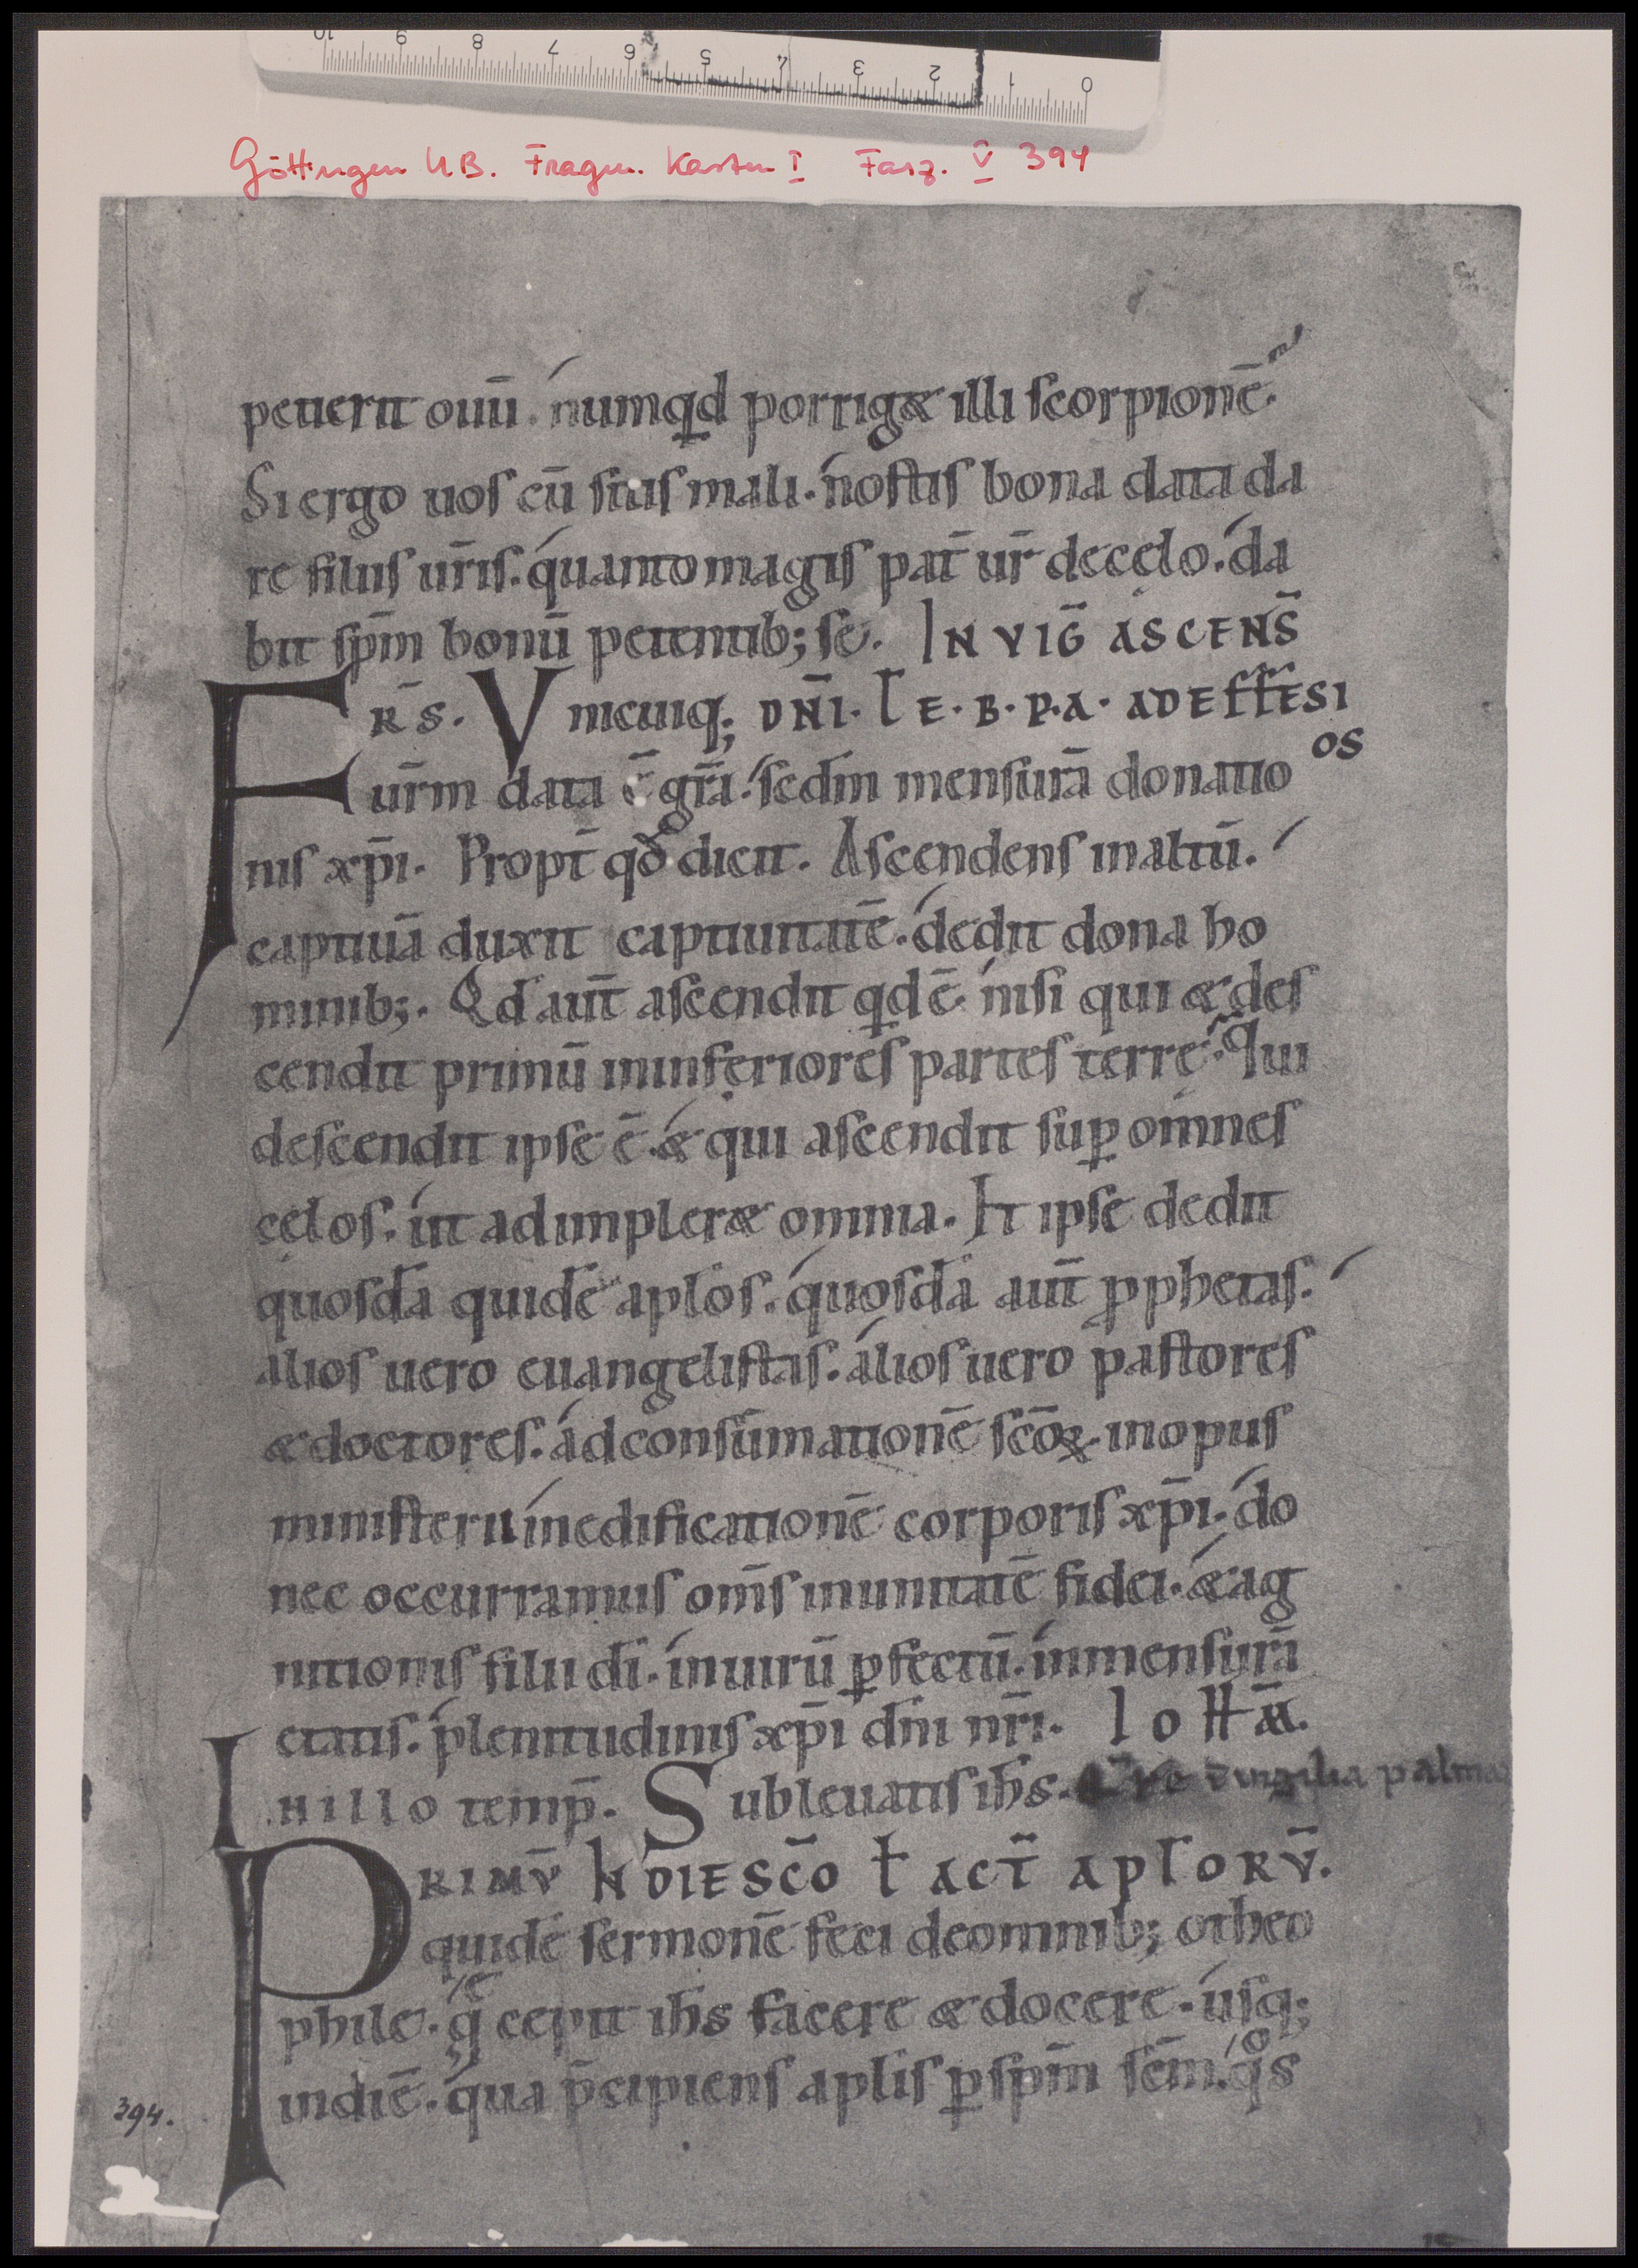 10 9 8 7 6 5 4 3 2 1 0
Göttingen UB. Fragm. Kasten I Fasz. V 394
petierit ouū. numqd porrig& illi scorpionē.
Si ergo uos cū sitis mali. nostis bona data da
re filiis ur̄is. quanto magis pat̄ ur̄ decęlo. da
bit sp̄m bonū petentib; se. IN VIḠ ASCENS̄
FR̄S. Vnicuiq; DN̄I. L̄ E. B. P. A. ADEFFESI
os
ur̄m data ē gr̄a. sedm̄ mensurā donatio
nis xp̄i. Propt̄ qđ dicit. Ascendens inaltū.
captiuā duxit captiuitatē. dedit dona ho
minib;. Qđ aūt ascendit qd ē nisi qui & des
cendit primū ininferiores partes terrę. Qui
descendit ipse ē. & qui ascendit suꝑ omnes
cęlos. ut adimpler& omnia. Et ipse dedit
quosdā quidē apłos. quosdā aūt ꝓphetas.
alios uero euangelistas. alios uero pastores
& doctores. adconsūmationē sc̄oꝝ. inopus
ministerii inedificationē corporis xp̄i. do
nec occurramus om̄s inunitatē fidei. & ag
nitionis filii dī. inuirū ꝑfectū. inmensurā
etatis. plenitudinis xp̄i dn̄i nr̄i. IOHĀ.
INILLO temp̄. Subleuatis ih̄s. uirgilia palma
PRIMV̄ IN DIESC̄O Ł ACT̄ APLORV̄.
quidē sermonē feci deomnib; otheo
phile. q̄ cepit ih̄s facere & docere. usq;
indiē. qua p̄cipiens aplis ꝑ sp̄m sc̄m. qͦs
394.